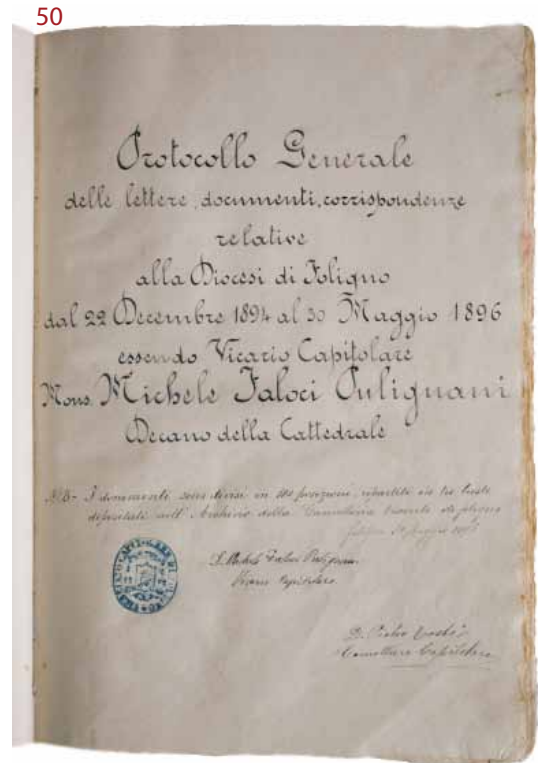 50
Protocollo Generale
delle lettere, documenti, corrispondenze
relative
alla Diocesi di Foligno
dal 22 Decembre 1894 al 30 Maggio 1896
essendo Vicario Capitolare
Mons. Michele Faloci Pulignani
Decano della Cattedrale
N.B. - I documenti sono divisi in posizioni, ripartiti in tre buste
depositati nell'Archivio della Cancelleria Vescovile di Foligno
Foligno 30 Maggio
D. Michele Faloci Pulignani
Vicario Capitolare
D. Pietro
Cancelliere Capitolare